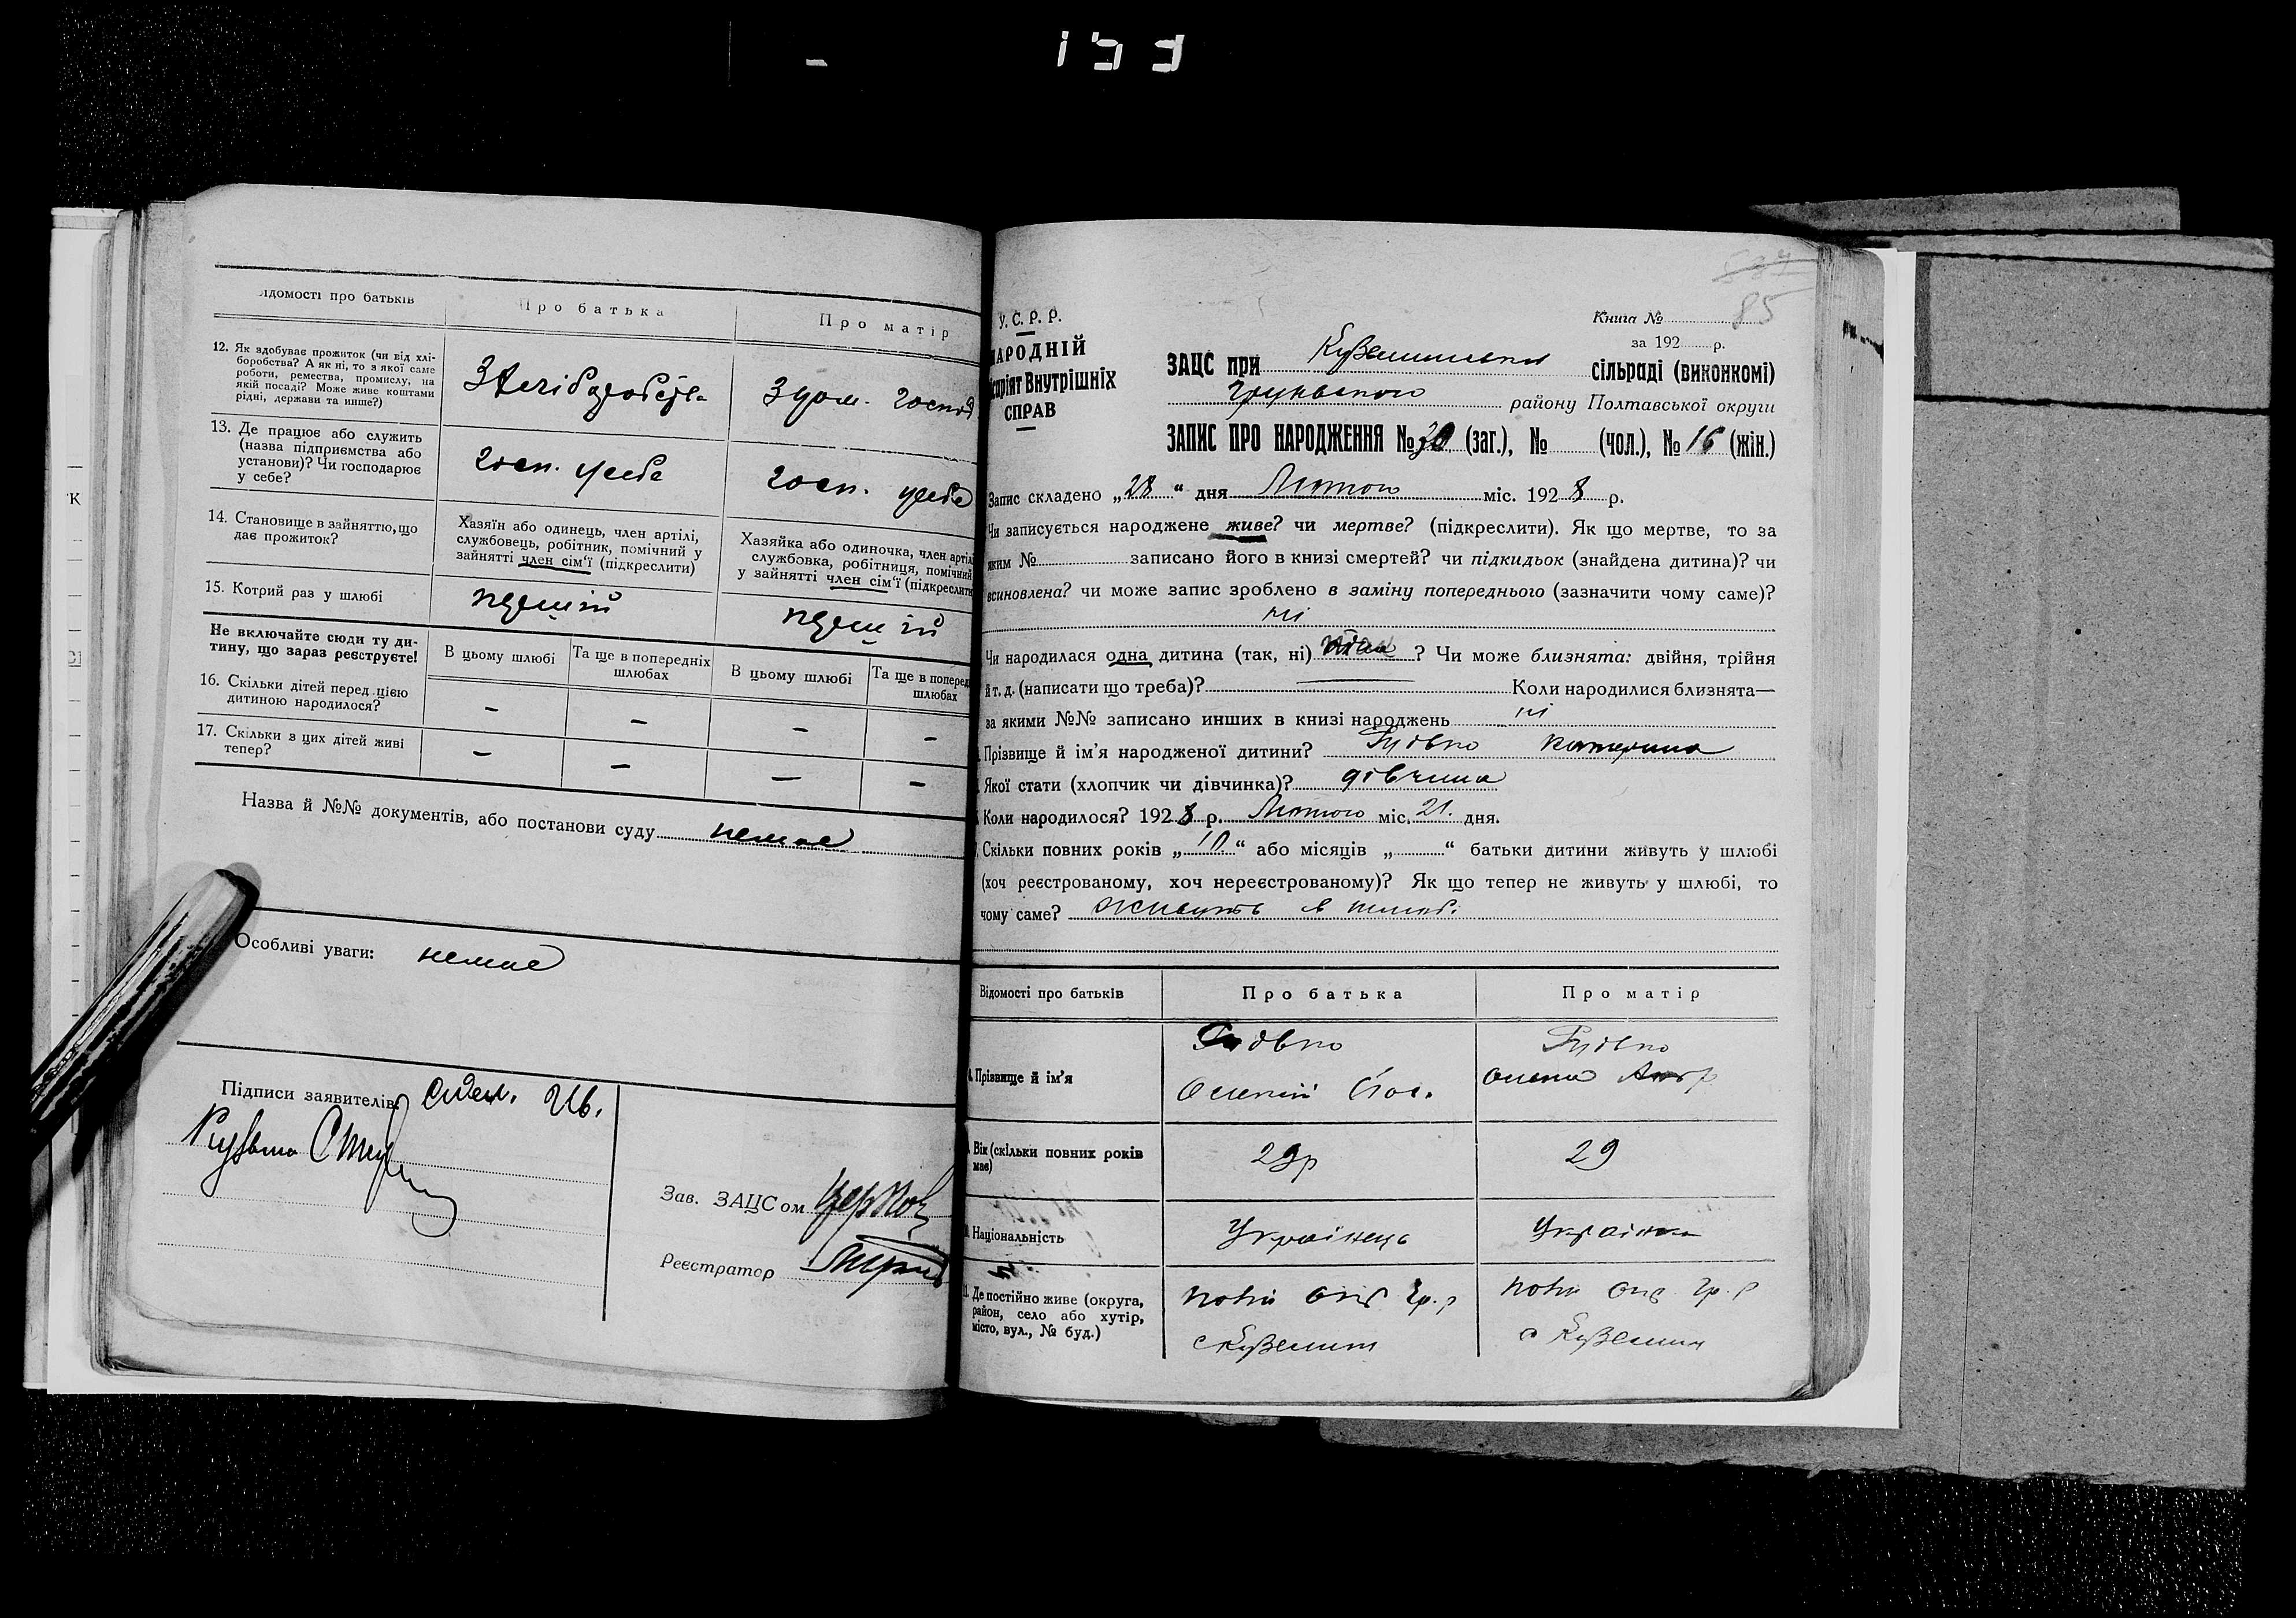 153
ідомості про батьків
Про батька
Про матір
12. Як здобуває прожиток (чи від хлі-
боробства? А як ні, то з якої саме
роботи, ремества, промислу, на
якій посаді? Може живе коштами
рідні, держави та инше?)
З хліборобств-
З дом. господ
13. Де працює або служить
(назва підприємства або
установи)? Чи господарює
у себе?
госп. у себе
госп. у себе
14. Становище в зайняттю, що
дає прожиток?
Хазяїн або одинець, член артілі,
службовець, робітник, помічний у
зайнятті член сім'ї (підкреслити)
Хазяйка або одиночка, член артіл
службовка, робітниця, помічний
у зайнятті член сім'ї (підкреслити
15. Котрий раз у шлюбі
перший
перший
Не включайте сюди ту ди-
тину, що зараз реєструєте!
В цьому шлюбі
Та ще в попередніх
шлюбах
В цьому шлюбі
Та ще в поперед
шлюбах
16. Скільки дітей перед цією
дитиною народилося?
– – – –
17. Скільки з цих дітей живі
тепер?
– – – –
Назва й №№ документів, або постанови суду немає
Особливі уваги: немає
Підписи заявителів:
Зав. ЗАЦСом
Реєстратор
85
У. С. Р. Р.
НАРОДНІЙ
саріят Внутрішніх
СПРАВ
Книга №
за 192 р.
ЗАЦС при Куземинські сільраді (виконкомі)
Груньського району Полтавської округи
ЗАПИС ПРО НАРОДЖЕННЯ № 30 (заг.), № (чол.), № 16 (жін.)
Запис складено „28“ дня Лютого міс. 1928 р.
Чи записується народжене живе? чи мертве? (підкреслити). Як що мертве, то за
яким № записано його в книзі смертей? чи підкидьок (знайдена дитина)? чи
всиновлена? чи може запис зроблено в заміну попереднього (зазначити чому саме)?
ні
Чи народилася одна дитина (так, ні) ? Чи може близнята: двійня, трійня
й т. д. (написати що треба)? — Коли народилися близнята—
за якими №№ записано инших в книзі народжень ні
Прізвище й ім'я народженої дитини? Катерина
Якої стати (хлопчик чи дівчинка)? дівчина
Коли народилося? 1928 р. Лютого міс. 21. дня.
Скільки повних років „10“ або місяців „ “ батьки дитини живуть у шлюбі
(хоч реєстрованому, хоч нереєстрованому)? Як що тепер не живуть у шлюбі, то
чому саме? живуть в шлюб.
Відомості про батьків
Про батька
Про матір
Прізвище й ім'я
Йос.
Олена
Вік (скільки повних років
має)
29р
29
Національність
Українець
Українка
Де постійно живе (округа,
район, село або хутір,
місто, вул., № буд.)
Полт Окр Гр. р
с Куземин
Полт Окр Гр. р
с Куземин